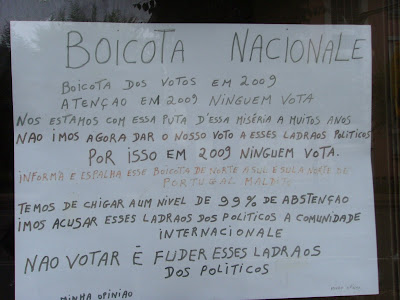 BOICOTA NACIONALE
BOICOTA DOS VOTOS EM 2009
ATENÇAO EM 2009 NINGUEM VOTA
NOS ESTAMOS COM ESSA PUTA D'ESSA MISÉRIA A MUITOS ANOS
NAO IMOS AGORA DAR O NOSSO VOTO A ESSES LADRAOS POLITICOS
POR ISSO EM 2009 NINGUEM VOTA.
INFORMA E ESPALHA ESSE BOICOTA DE NORTE A SUL E SUL A NORTE DE
PORTUGAL MALDITO
TEMOS DE CHIGAR A UM NIVEL DE 99% DE ABSTENÇAO
IMOS ACUSAR ESSES LADRAOS DOS POLITICOS A COMUNIDADE
INTERNACIONALE
NAO VOTAR É FUDER ESSES LADRAOS
DOS POLITICOS
MINHA OPINIAO